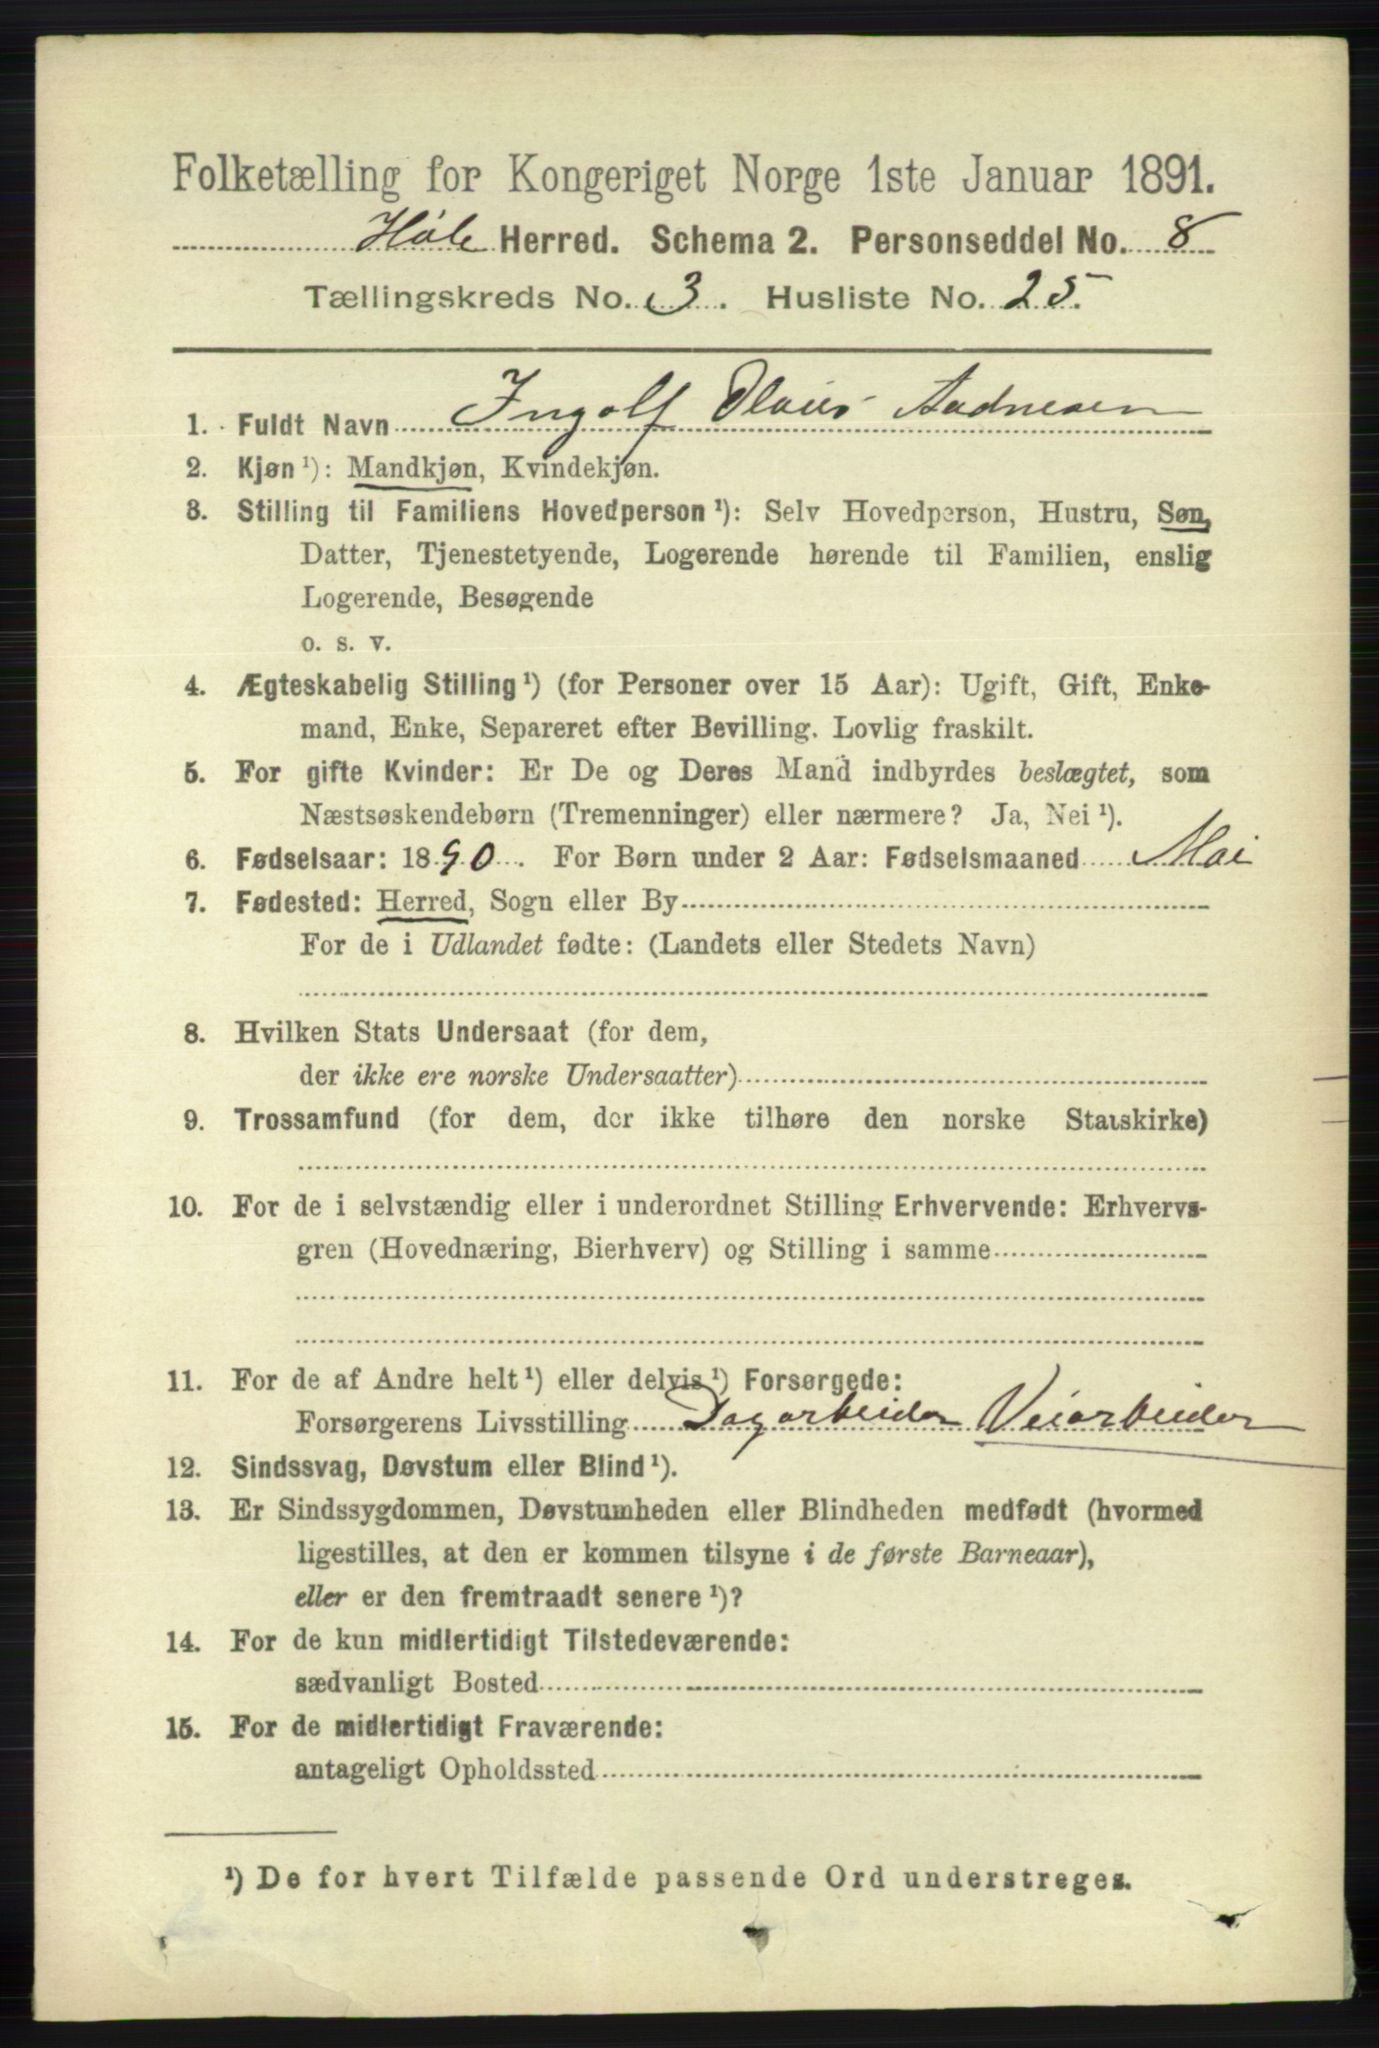 Folketælling for Kongeriget Norge 1ste Januar 1891.
Høle Herred. Schema 2. Personseddel No. 8
Tællingskreds No. 3. Husliste No. 25.
1. Fuldt Navn Ingolf Olaus Aadnesen
2. Kjøn¹): Mandkjøn, Kvindekjøn.
3. Stilling til Familiens Hovedperson¹): Selv Hovedperson, Hustru, Søn,
Datter, Tjenestetyende, Logerende hørende til Familien, enslig
Logerende, Besøgende
o. s. v.
4. Ægteskabelig Stilling¹) (for Personer over 15 Aar): Ugift, Gift, Enke-
mand, Enke, Separeret efter Bevilling. Lovlig fraskilt.
5. For gifte Kvinder: Er De og Deres Mand indbyrdes beslægtet, som
Næstsøskendebørn (Tremenninger) eller nærmere? Ja, Nei¹).
6. Fødselsaar: 1890. For Børn under 2 Aar: Fødselsmaaned Mai
7. Fødested: Herred, Sogn eller By
For de i Udlandet fødte: (Landets eller Stedets Navn)
8. Hvilken Stats Undersaat (for dem,
der ikke ere norske Undersaatter)
9. Trossamfund (for dem, der ikke tilhøre den norske Statskirke)
10. For de i selvstændig eller i underordnet Stilling Erhvervende: Erhvervs-
gren (Hovednæring, Bierhverv) og Stilling i samme
11. For de af Andre helt¹) eller delvis¹) Forsørgede:
Forsørgerens Livsstilling Dagarbeider Veiarbeider
12. Sindssvag, Døvstum eller Blind¹).
13. Er Sindssygdommen, Døvstumheden eller Blindheden medfødt (hvormed
ligestilles, at den er kommen tilsyne i de første Barneaar),
eller er den fremtraadt senere¹)?
14. For de kun midlertidigt Tilstedeværende:
sædvanligt Bosted
15. For de midlertidigt Fraværende:
antageligt Opholdssted
¹) De for hvert Tilfælde passende Ord understreges.